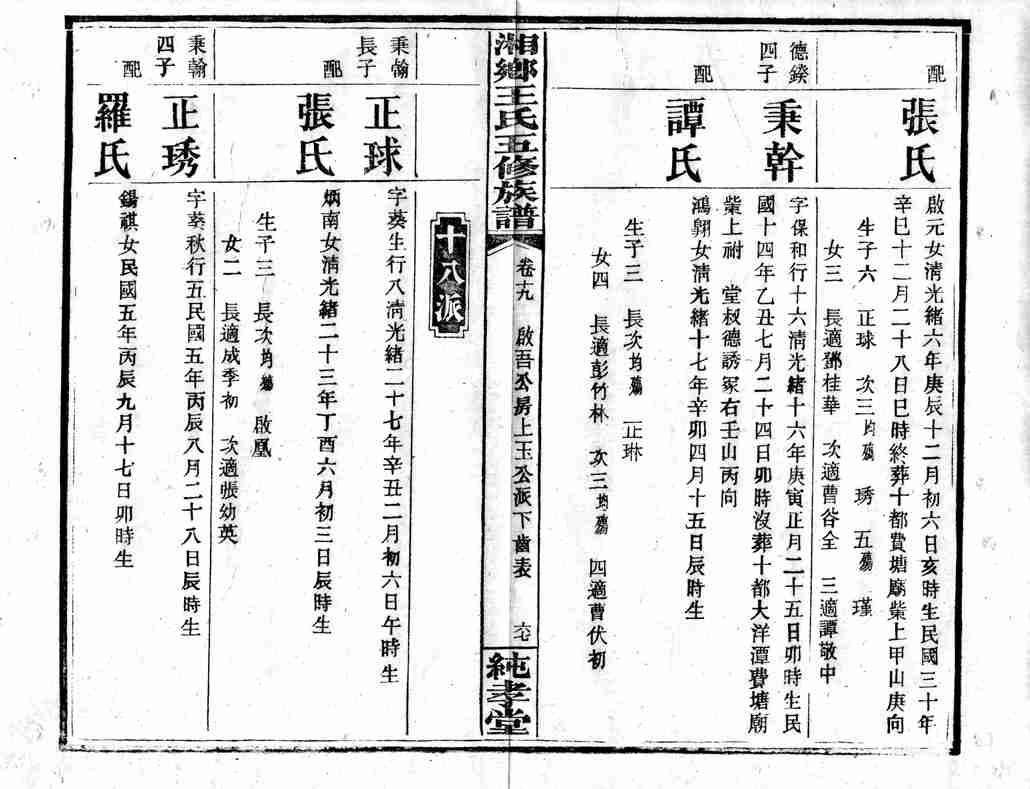 配
張氏
啟元女清光緒六年庚辰十二月初六日亥時生民國三十年
辛巳十二月二十八日巳時終葬十都費塘廟柴上甲山庚向
生子六 正球 次三均殤 琇 五殤 瑾
女三 長適鄧桂華 次適曹谷全 三適譚敬中
德鍨
四子
秉幹
字保和行十六清光緒十六年庚寅正月二十五日卯時生民
國十四年乙丑七月二十四日卯時沒葬十都大洋潭費塘廟
柴上祔 堂叔德誘冢右壬山丙向
配
譚氏
鴻翱女清光緒十七年辛卯四月十五日辰時生
生子三 長次均殤 正琳
女四 長適彭竹林 次三均殤 四適曹伏初
湘鄉王氏五修族譜
卷十九 啟吾公房上玉公派下齒表
純孝堂
十八派
秉翰
長子
正球
字葵生行八清光緒二十七年辛丑二月初六日午時生
配
張氏
炳南女清光緒二十三年丁酉六月初三日辰時生
生子三 長次均殤 啟凰
女二 長適成季初 次適張幼英
秉翰
四子
正琇
字葵秋行五民國五年丙辰八月二十八日辰時生
配
羅氏
錫祺女民國五年丙辰九月十七日卯時生